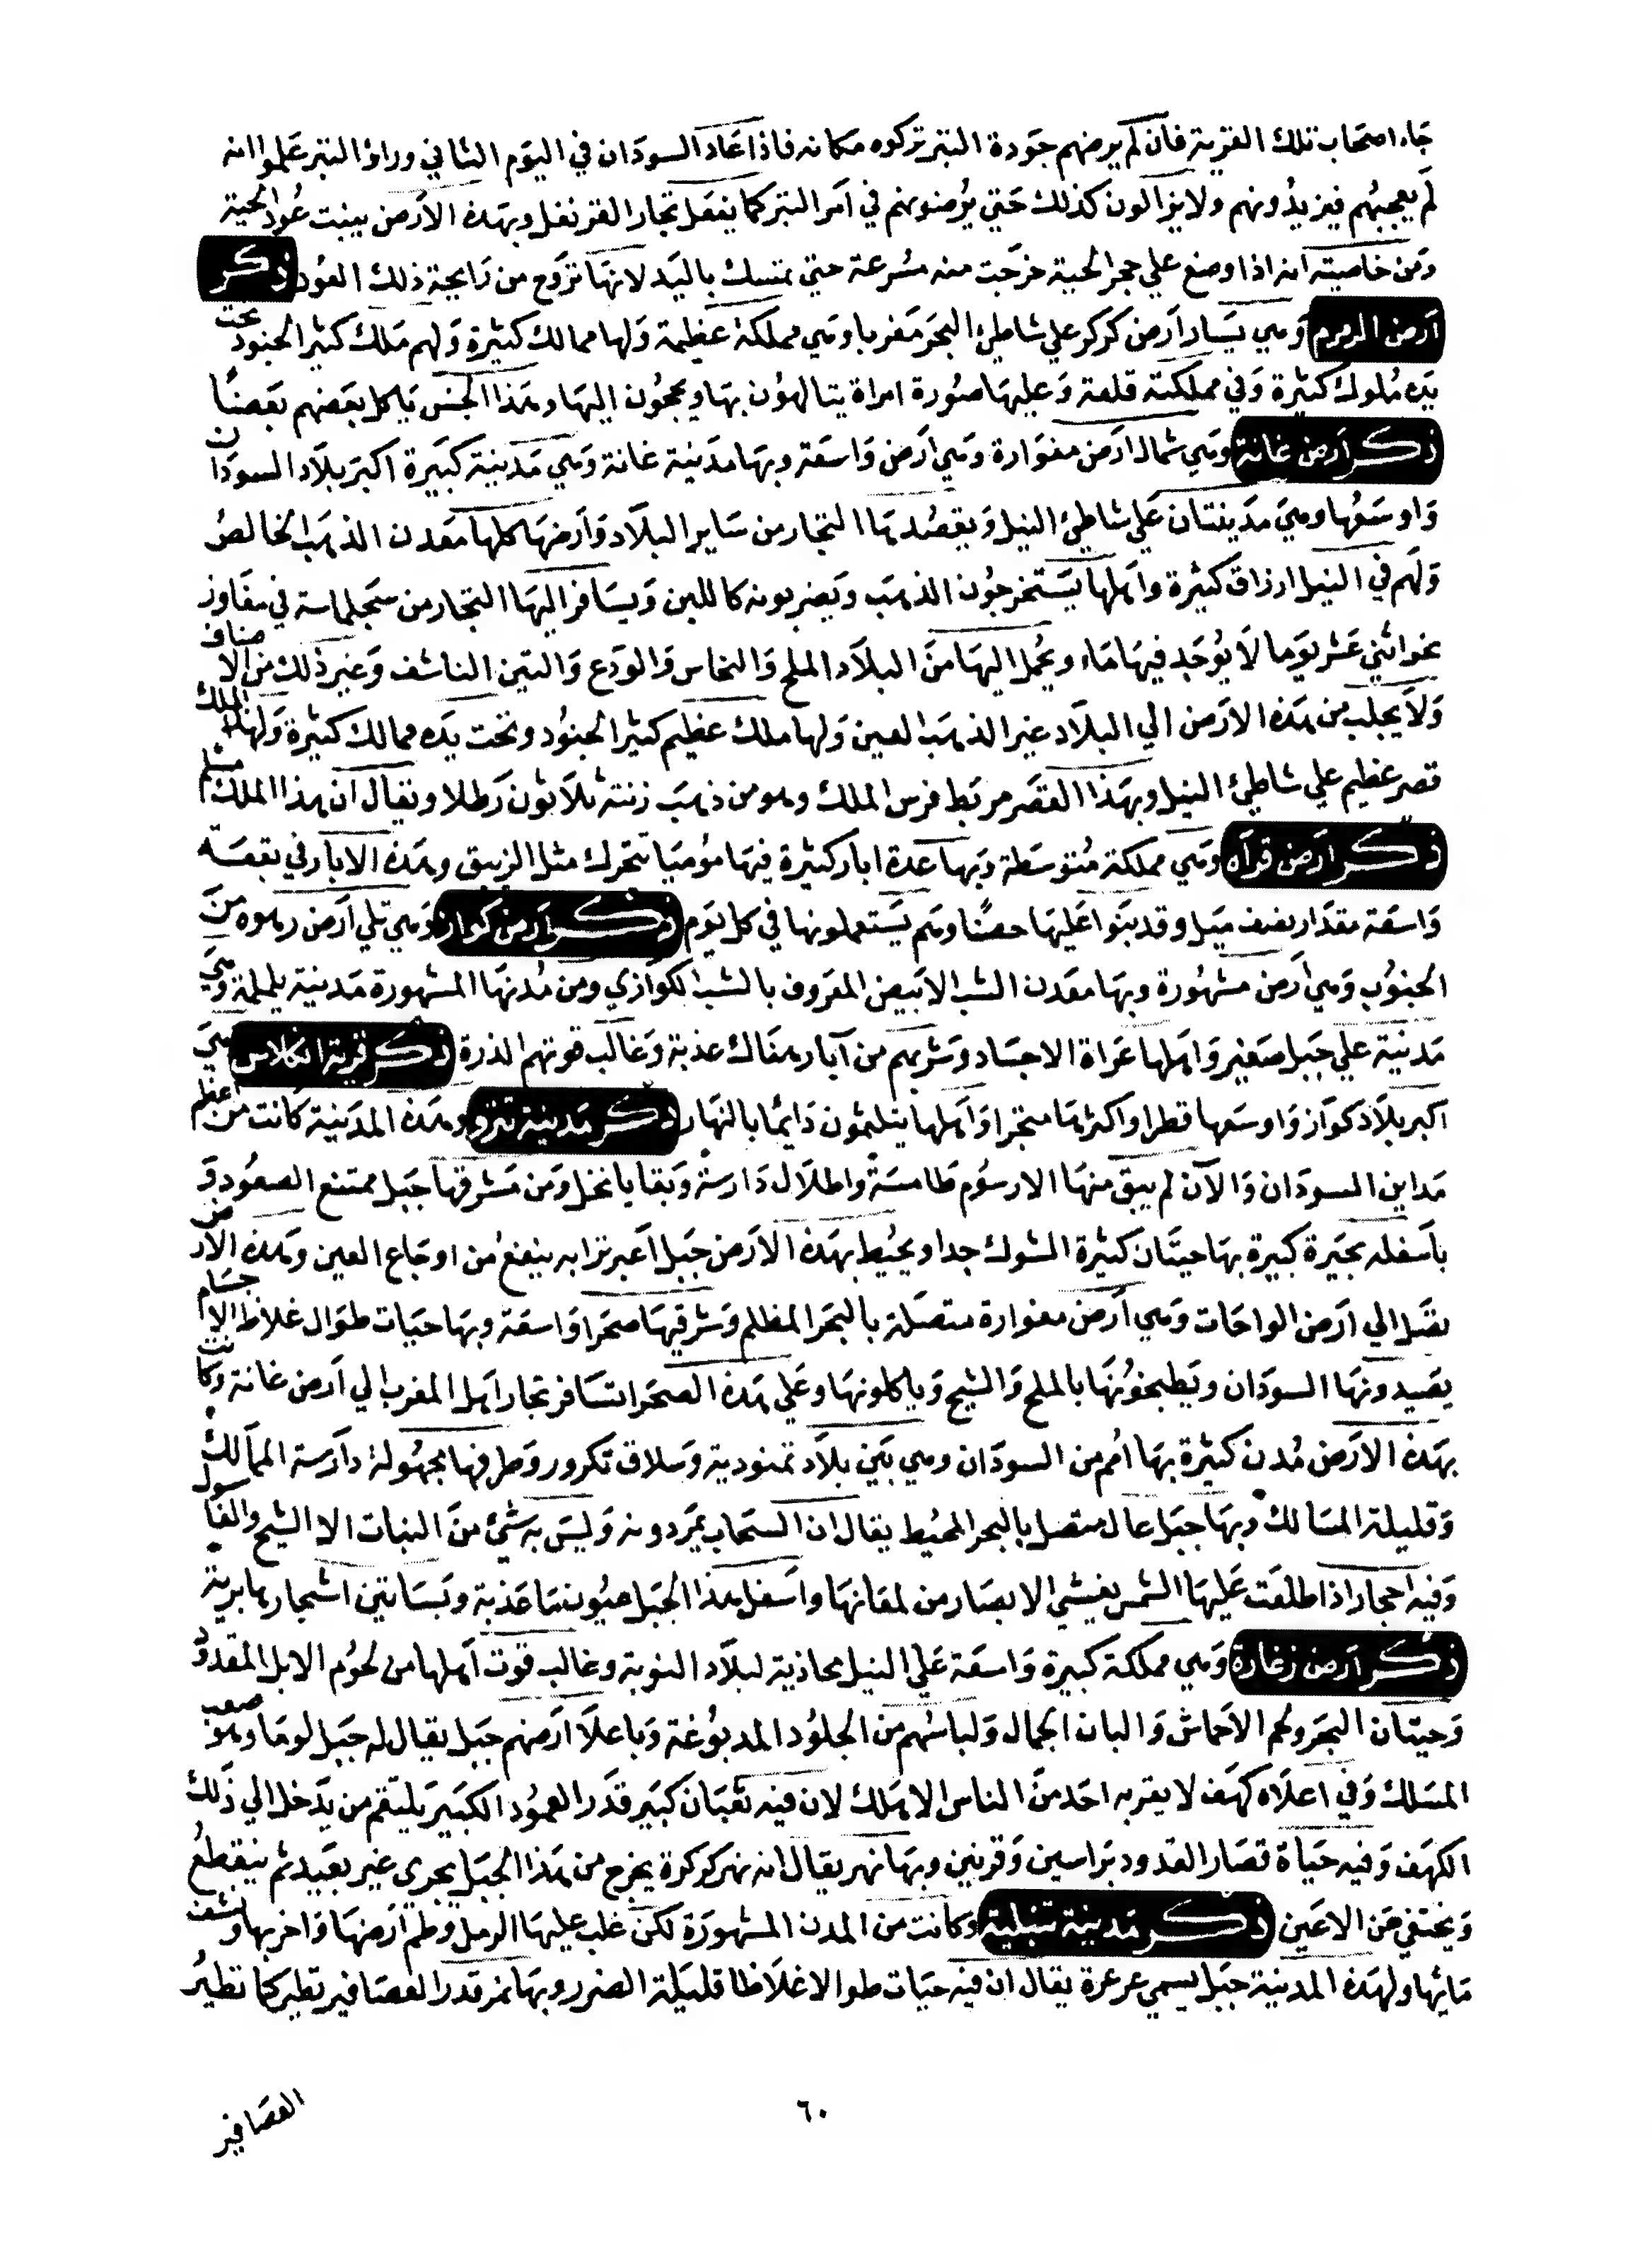 جاء اصحاب تلك القرية فان لم يرضهم جودة التبر تركوه مكانه فاذا عاد السودان في اليوم الثاني وراوا التبر علموا انه
لم يعجبهم فيزيدونهم ولا يزالون كذلك حتي يرضونهم في امر التبر كما يفعل تجار القرنفل وبهذه الارض ينبت عود الحية
ومن خاصيته انه اذا وضع علي حجر الحية خرجت منه مسرعة حتي تمسك باليد لانها تروح من رايحة ذلك العود ذكر
ارض الدمدم وهي يسار ارض كركر علي شاطئ البحر مغربا وهي مملكة عظيمة ولها ممالك كثيرة ولهم ملك كثير الجنود تحت
يده ملوك كثيرة وفي مملكته قلعة وعليها صورة امراة يتالهون بها ويحجون اليها وهذا الجنس ياكل بعضهم بعضا
ذكر ارض غانة وهي شمال ارض مغوارة وهي ارض واسعة وبها مدينة غانة وهي مدينة كبيرة اكبر بلاد السودان
واوسعها وهي مدينتان علي شاطئ النيل ويقصدها التجار من ساير البلاد وارضها كلها معدن الذهب الخالص
ولهم في النيل ارزاق كثيرة واهلها يستخرجون الذهب ويضربونه كاللبن ويسافر اليها التجار من سجلماسة في مفاوز
نحو اثني عشر يوما لا يوجد فيها ماء ويحمل اليها من البلاد الملح والنحاس والودع والتين الناشف وغير ذلك من الاصناف
ولا يجلب من هذه الارض الي البلاد غير الذهب العين ولها ملك عظيم كثير الجنود وتحت يده ممالك كثيرة ولهذا الملك
قصر عظيم علي شاطئ النيل وبهذا القصر مربط فرس الملك وهو من ذهب زنته ثلاثون رطلا ويقال ان هذا الملك مسلم
ذكر ارض قرآن وهي مملكة متوسطة وبها عدة ابار كثيرة فيها موميا تتحرك مثل الزيبق وهذه الابار في بقعة
واسعة مقدار نصف ميل وقد بنوا عليها حصنا وهم يستعملونها في كل يوم ذكر ارض كوار وهي تلي ارض رهوه من
الجنوب وهي ارض مشهورة وبها معدن الشب الابيض المعروف بالشب الكوازي ومن مدنها المشهورة مدينة يلملمة وهي
مدينة علي جبل صغير واهلها عراة الاجساد وشربهم من آبار هناك عذبة وغالب قوتهم الذرة ذكر قرية انكلاس وهي
اكبر بلاد كوار واوسعها قطرا واكثرها متجرا واهلها يتلثمون دايما بالنهار ذكر مدينة تنزو وهذه المدينة كانت من اعظم
مداين السودان والآن لم يبق منها الا رسوم طامسة واطلال دارسة وبقايا نخل ومن مشرقها جبل ممتنع الصعود و
باسفله بحيرة كبيرة بها حيتان كثيرة الشوك جدا ويحيط بهذه الارض جبل اغبر ترابه ينفع من اوجاع العين وهذه الارض
تصل الي ارض الواحات وهي ارض مغوارة متصلة بالبحر المظلم وشرقيها صحرا واسعة وبها حيات طوال غلاظ الاجسام
يصيدونها السودان ويطبخونها بالملح والشيح وياكلونها وعلي هذه الصحرا تسافر تجار اهل المغرب الي ارض غانة وكانت
بهذه الارض مدن كثيرة بها امم من السودان وهي بين بلاد تمنودية وسلاق تكرور وطرفها مجهولة دارسة الممالك
وقليلة المسالك وبها جبل عال متصل بالبحر المحيط يقال ان السحاب يمر دونه وليس به شئ من النبات الا الشيح والغاسول
وفيه احجار اذا طلعت عليها الشمس يغيشي الابصار من لمعانها واسفل هذا الجبل عيون ماء عذبة وبساتين اشجارها برية
ذكر ارض زغارة وهي مملكة كبيرة واسعة علي النيل محاذية لبلاد النوبة وغالب قوت اهلها من لحوم الابل المقددة
وحيتان البحر ولحم الاحناش والبان الجمال ولباسهم من الجلود المدبوغة وباعلا ارضهم جبل يقال له جبل لوما وهو صعب
المسلك وفي اعلاه كهف لا يقربه احد من الناس الا هلك لان فيه ثعبان كبير قدر العمود الكبير يلتقم من يدخل الي ذلك
الكهف وفيه حياة قصار القدود براسين وقرنين وبها نهر يقال انه نهر كوكرة يخرج من هذا الجبل يجري غير بعيد ثم ينقطع
ويختفي عن الاعين ذكر مدينة وكانت من المدن المشهورة لكن غلب عليها الرمل وطم ارضها واخربها ونشف
مائها ولهذه المدينة جبل يسمي عرعرة يقال ان فيه حيات طوالا غلاظا قليلة الضرر وبها نمر قدر العصافير تطير كما تطير
العصافير
٦٠